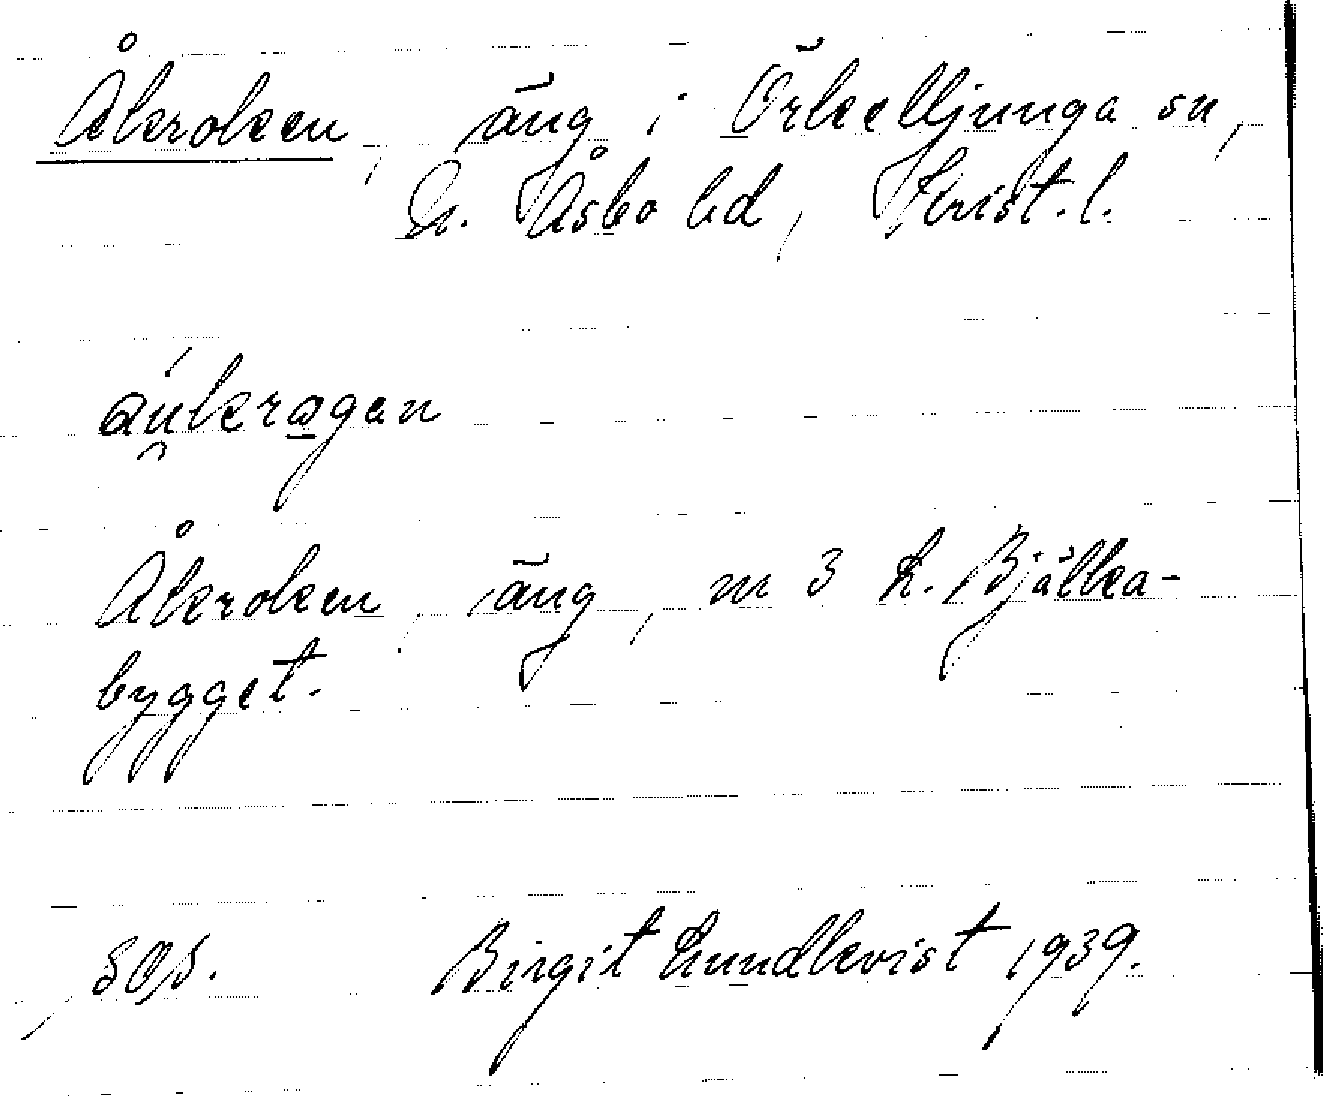 Åkroken, äng i Örkelljunga sn,
N. Åsbo hd, Krist. l.
áu̯krɑ̱gan
Åkroken, äng, m 3 L. Bjälka-
bygget.
Birgit Lundkvist 1939.